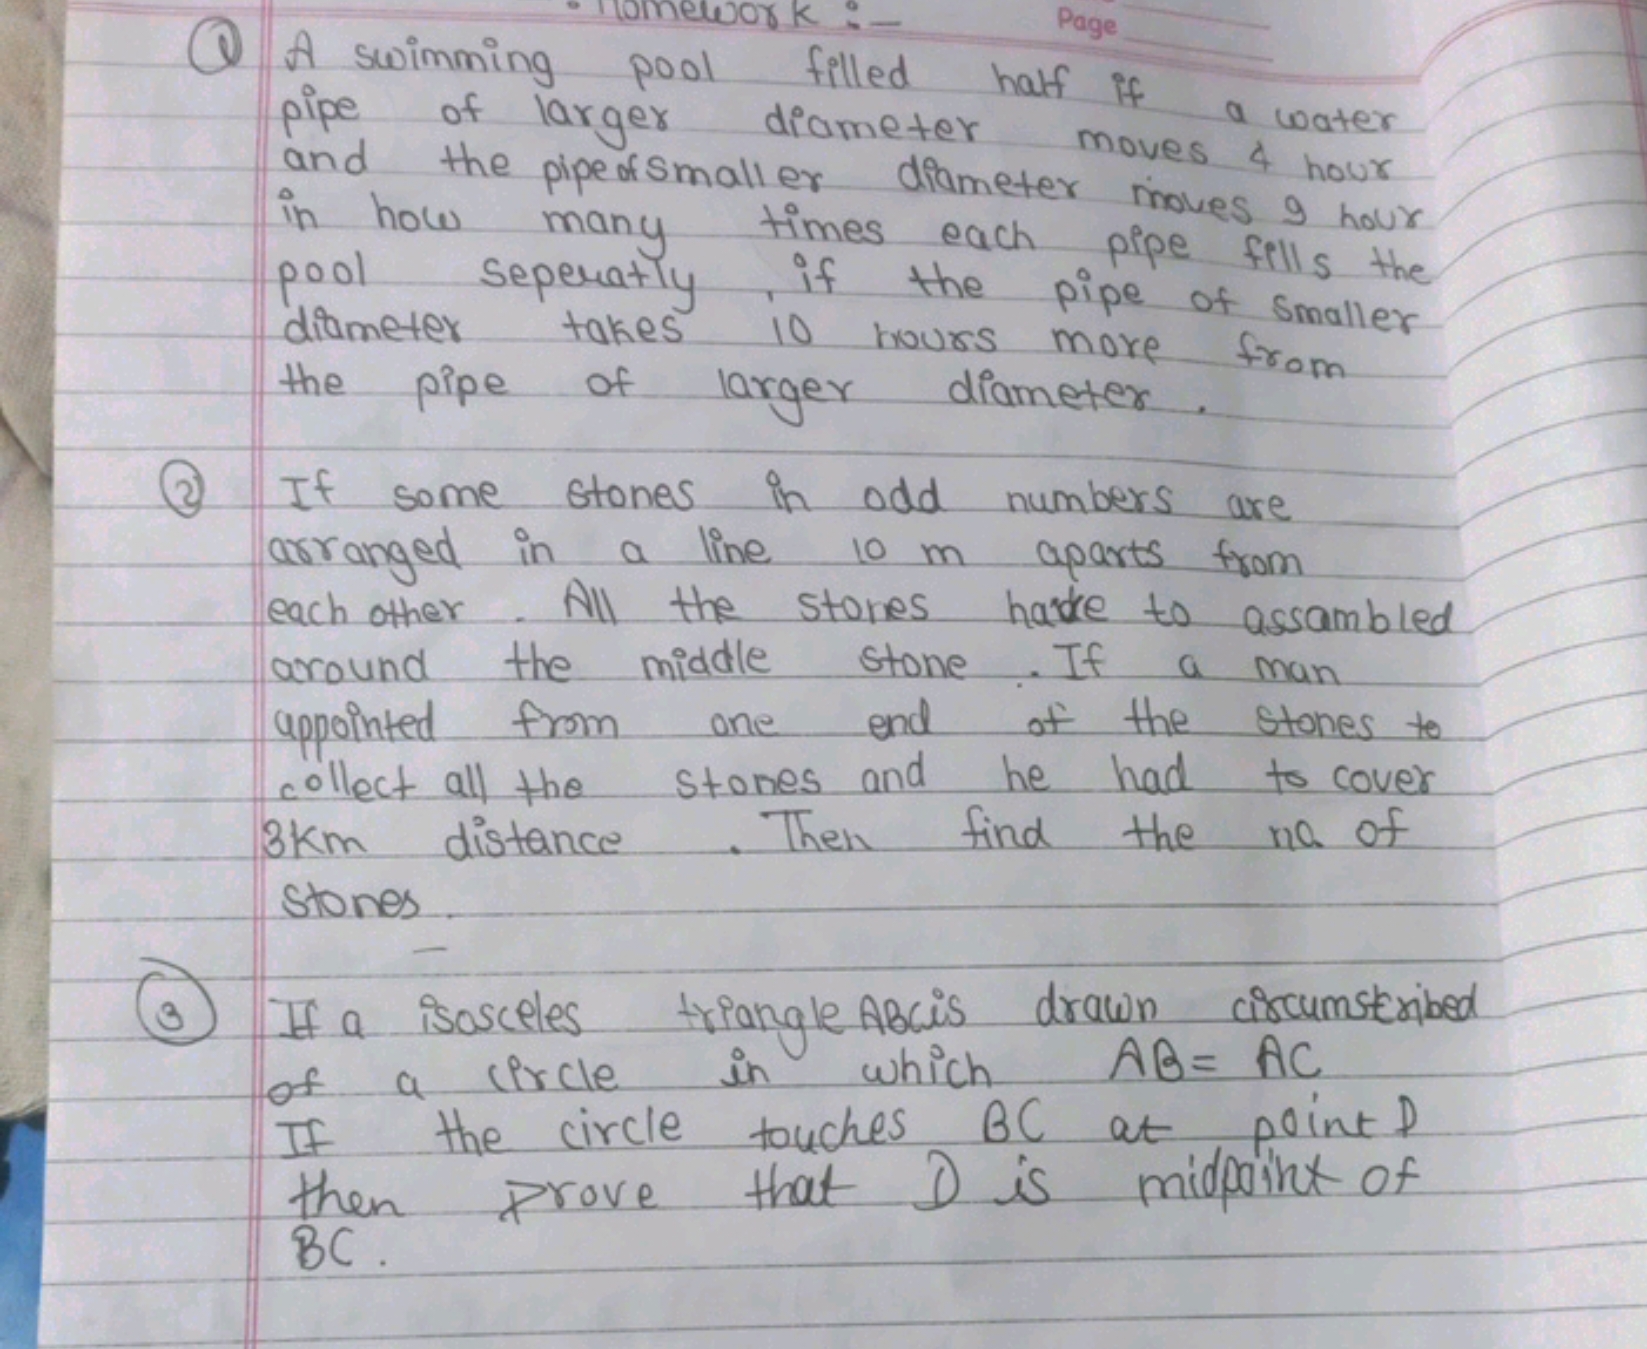 Homework :-
Page
① A swimming pool filled half if a water
pipe of larger diameter moves 4 hour
and the pipe of smaller diameter moves 9 hour
in how many times each pipe fills the
pool seperatly, if the pipe of smaller
diameter takes 10 hours more from
the pipe of larger diameter.
② If some stones in odd numbers are
arranged in a line 10 m aparts from
each other. All the stones have to assambled
around the middle stone. If a man
appointed from one end of the stones to
collect all the stones and he had to cover
3km distance. Then find the no. of
stones.
③ If a isosceles triangle ABC is drawn circumscribed
of a circle in which AB = AC
If the circle touches BC at point D
then prove that D is midpoint of
BC.